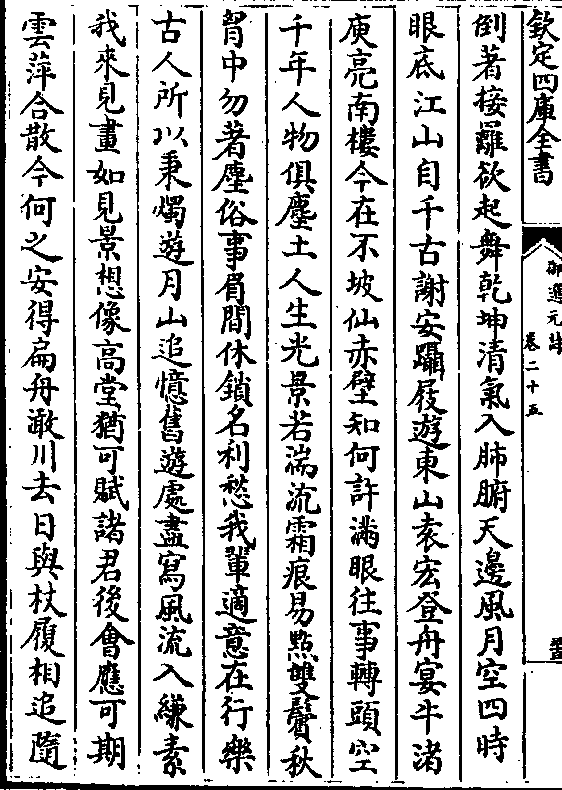 欽定四庫全書
御選元詩
卷二十五
倒著接䍦欲起舞乾坤清氣入肺腑天邊風月空四時
眼底江山自千古謝安躡屐遊東山袁宏登舟宴牛渚
庾亮南樓今在不坡仙赤壁知何許滿眼往事轉頭空
千年人物俱塵土人生光景若湍流霜痕易點雙鬢秋
胷中勿著塵俗事眉間休鎖名利愁我輩適意在行樂
古人所以秉燭遊月山追憶舊遊處盡寫風流入縑素
我來見畫如見景想像高堂猶可賦諸君後會應可期
雲萍合散今何之安得扁舟澉川去日與杖履相追隨